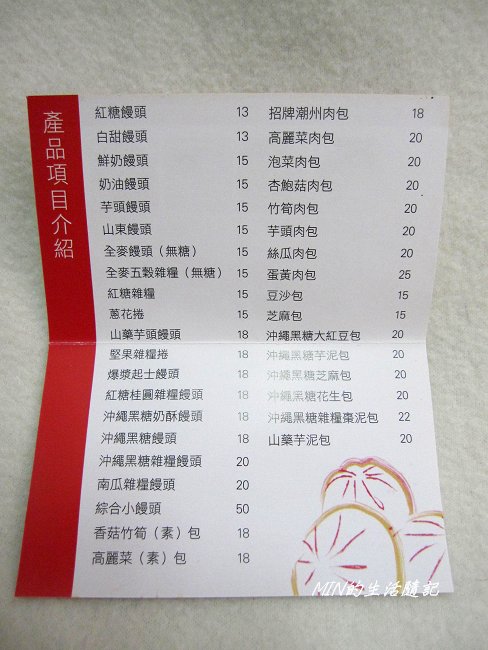 產品項目介紹
紅糖饅頭 13
白甜饅頭 13
鮮奶饅頭 15
奶油饅頭 15
芋頭饅頭 15
山東饅頭 15
全麥饅頭（無糖） 15
全麥五穀雜糧（無糖） 15
紅糖雜糧 15
蔥花捲 15
山藥芋頭饅頭 18
堅果雜糧捲 18
爆漿起士饅頭 18
紅糖桂圓雜糧饅頭 18
沖繩黑糖奶酥饅頭 18
沖繩黑糖饅頭 18
沖繩黑糖雜糧饅頭 20
南瓜雜糧饅頭 20
綜合小饅頭 50
香菇竹筍（素）包 18
高麗菜（素）包 18
招牌潮州肉包 18
高麗菜肉包 20
泡菜肉包 20
杏鮑菇肉包 20
竹筍肉包 20
芋頭肉包 20
絲瓜肉包 20
蛋黃肉包 25
豆沙包 15
芝麻包 15
沖繩黑糖大紅豆包 20
沖繩黑糖芋泥包 20
沖繩黑糖芝麻包 20
沖繩黑糖花生包 20
沖繩黑糖雜糧棗泥包 22
山藥芋泥包 20
MIN的生活隨記